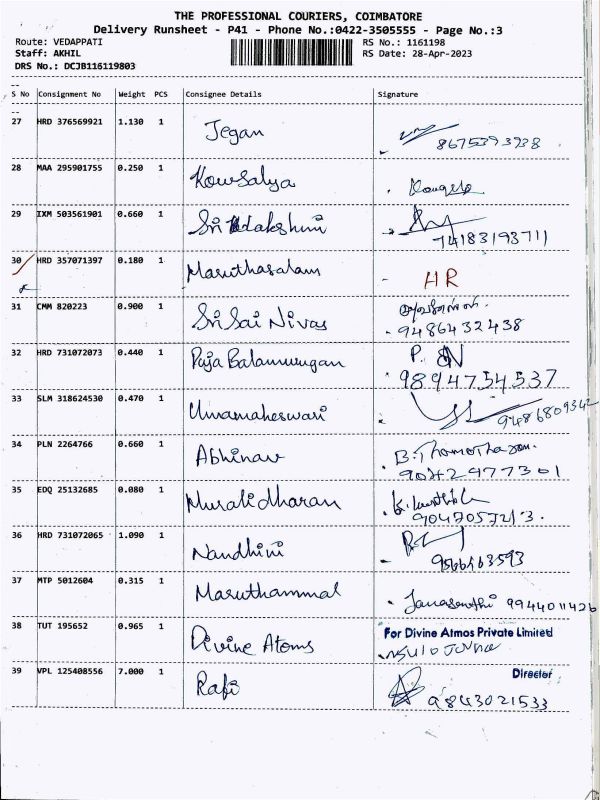 THE PROFESSIONAL COURIERS, COIMBATORE
Delivery Runsheet - P41 - Phone No.:0422-3505555 - Page No.:3
Route: VEDAPPATI RS No.: 1161198
Staff: AKHIL RS Date: 28-Apr-2023
DRS No.: DCJB116119803
S No Consignment No Weight PCS Consignee Details Signature
27 HRD 376569921 1.130 1 Jegan
8675393938
28 MAA 295901755 0.250 1 Kowsalya
29 IXM 503561901 0.660 1 Sri dakshini
74183193711
30 HRD 357071397 0.180 1 Maruthasalam HR
31 CMM 820223 0.900 1 Sri Sai Nivas
9486432438
32 HRD 731072073 0.440 1 Puja Balamurugan P.
9894754537
33 SLM 318624530 0.470 1 Umamaheswari 9486809342
34 PLN 2264766 0.660 1 Abhinav B.
9042977301
35 EDQ 25132685 0.080 1 Muralidharan
9047057213.
36 HRD 731072065 1.090 1 Nandhini
9566463593
37 MTP 5012604 0.315 1 Maruthammal 9944011426
38 TUT 195652 0.965 1 Divine Atoms For Divine Atmos Private Limited
39 VPL 125408556 7.000 1 Rafi Director
9843021533